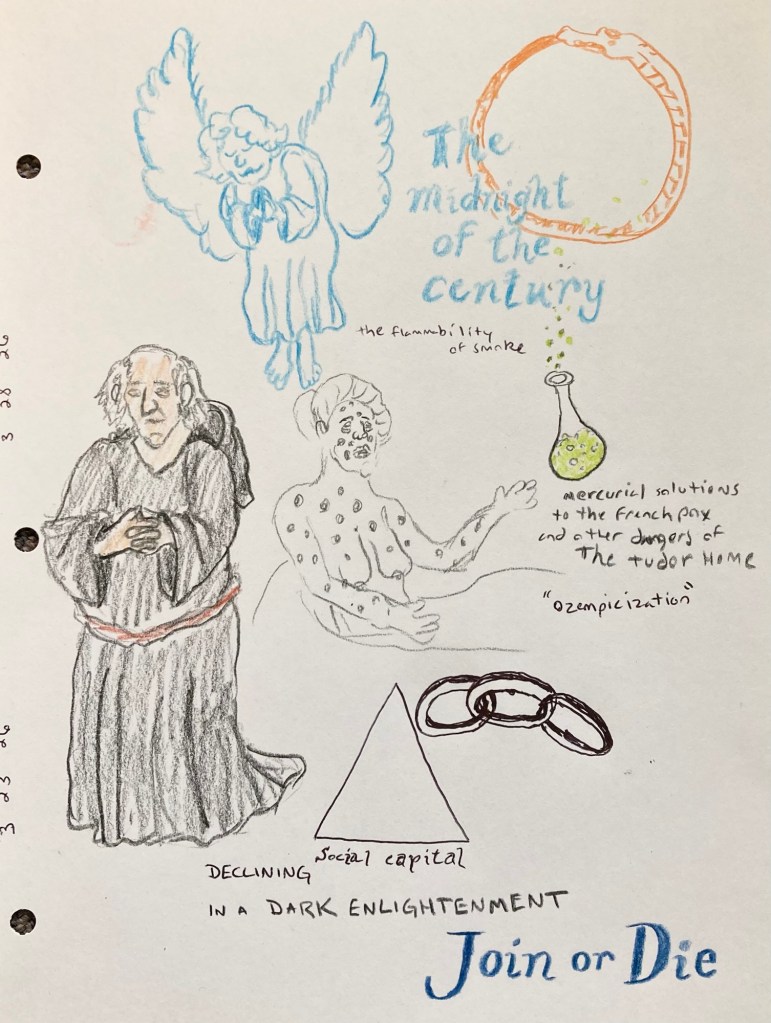 The
midnight
of the
century
the flammability
of smoke
mercurial solutions
to the French pox
and other dangers of
The tudor HOME
"Ozempicization"
Social capital
DECLINING
IN A DARK ENLIGHTENMENT
Join or Die
3 28 26
3 23 26